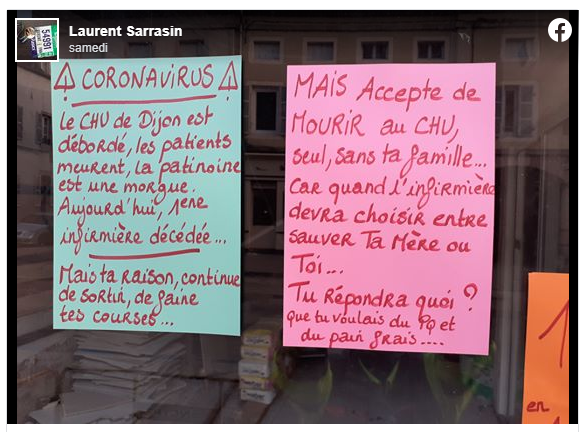 Laurent Sarrasin
samedi
54991
⚠ CORONAVIRUS ⚠
Le CHU de Dijon est
débordé, les patients
meurent, la patinoire
est une morgue.
Aujourd'hui, 1ene
infirmière décédée...
Mais ta raison, continue
de sortir, de faire
tes courses...
MAIS Accepte de
MOURIR au CHU,
seul, sans ta famille...
Car quand l'infirmière
devra choisir entre
sauver Ta Mère ou
Toi...
Tu Répondra quoi ?
que tu voulais du PQ et
du pain frais....
1
en